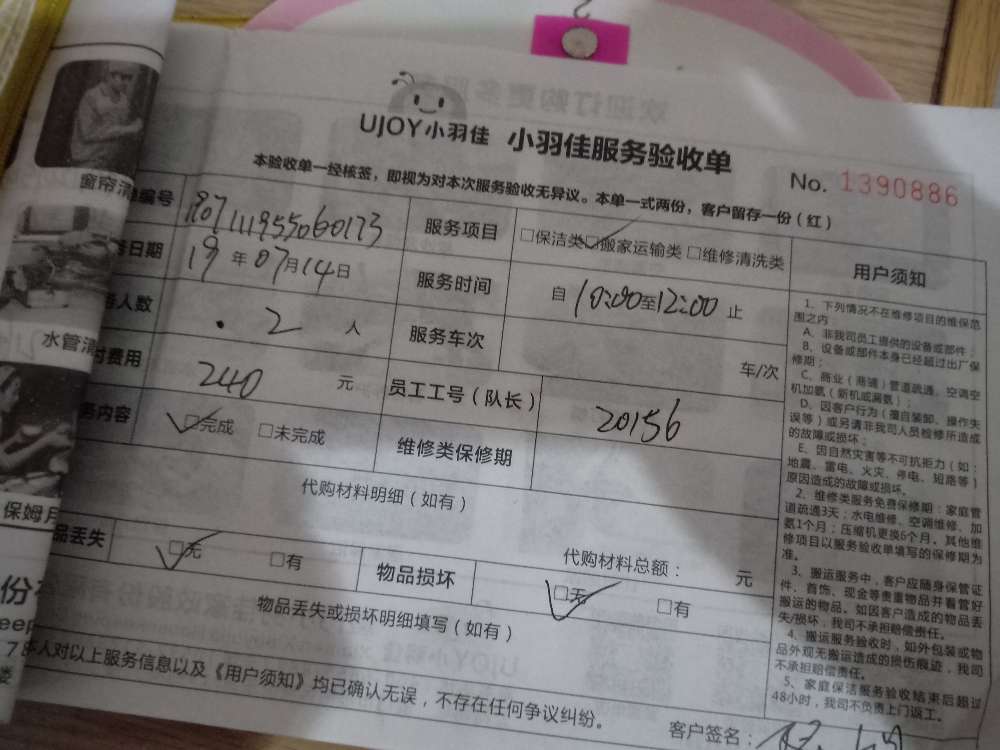 欢迎订购更多服务
UJOY小羽佳 小羽佳服务验收单
No. 1390886
本验收单一经核签，即视为对本次服务验收无异议。本单一式两份，客户留存一份（红）
窗帘清
编号
服务项目 □保洁类 □搬家运输类 □维修清洗类
日期 19年07月14日
服务时间 自10:00至12:00止
人数 2 人
服务车次 车/次
水管清
费用 240 元
员工工号（队长） 20156
务内容 □完成 □未完成
维修类保修期
代购材料明细（如有）
代购材料总额： 元
保姆月
品丢失 □无 □有
物品损坏 □无 □有
物品丢失或损坏明细填写（如有）
本人对以上服务信息以及《用户须知》均已确认无误，不存在任何争议纠纷。
客户签名：
用户须知
1、下列情况不在维修项目的维保范
围之内
A、非我司员工提供的设备或部件；
B、设备或部件本身已经超过出厂保
修期；
C、商业（商铺）管道疏通、空调空
机加氨（新机或漏氨）；
D、因客户行为（擅自装卸、操作失
误等）或另请非我司人员检修所造成
的故障或损坏；
E、因自然灾害等不可抗拒力（如：
地震、雷电、火灾、停电、短路等）
原因造成的故障或损坏。
2、维修类服务免费保修期：家庭管
道疏通3天；水电维修、空调维修、加
氨1个月；压缩机更换6个月。其他维
修项目以服务验收单填写的保修期为
准。
3、搬运服务中，客户应随身保管证
件、首饰、现金等贵重物品并看管好
搬运的物品。如因客户造成的物品丢
失/损坏，我司不承担赔偿责任。
4、搬运服务验收时，如外包装或物
品外观无搬运造成的损伤痕迹，我司
不承担赔偿责任。
5、家庭保洁服务验收结束后超过
48小时，我司不负责上门返工。